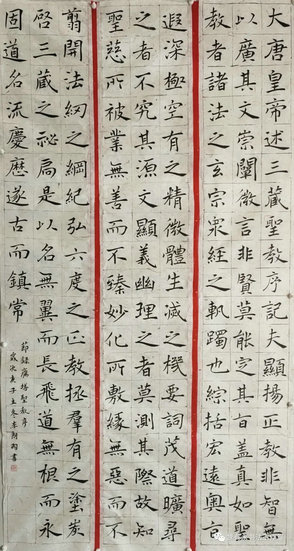 大唐皇帝述三藏聖教序記夫顯揚正教非智無
以廣其文崇闡微言非賢莫能定其旨蓋真如聖
教者諸法之玄宗衆經之軌躅也綜括宏遠奧旨
遐深極空有之精微體生滅之機要詞茂道曠尋
之者不究其源文顯義幽理之者莫測其際故知
聖慈所被業無善而不臻妙化所敷緣無惡而不
翦開法網之綱紀弘六度之正教拯羣有之塗炭
啓三藏之祕扃是以名無翼而長飛道無根而永
固道名流慶歷遂古而鎮常
節録雁塔聖教序
歲次庚子立冬書